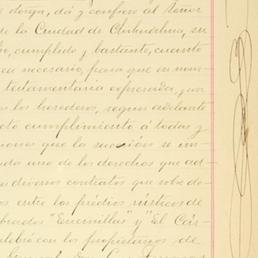 otorga, dá y confiere al Señor
de la Ciudad de Chihuahua, su
cumplido y bastante, cuanto
sea necesario, para que en nom
testamentaria expresada, y
los herederos, segun adelante
cumplimiento á todas y
que la sucesión se en
uno de los derechos que ad
diversos contratos que sobre
os entre los prédios rústicos de
"Encinillas" y "El
lebró con los propietarios de